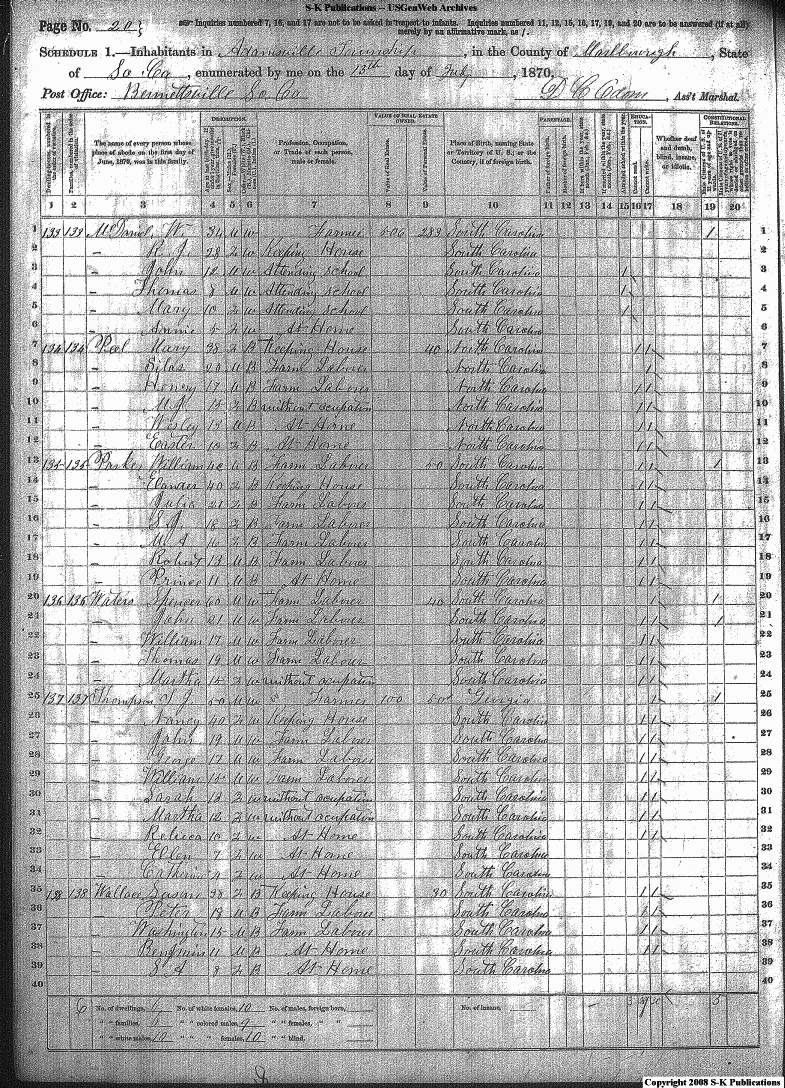 S-K Publications -- USGenWeb Archives
Page No. 20
Inquiries numbered 7, 16, and 17 are not to be asked in respect to infants. Inquiries numbered 11, 12, 15, 16, 17, 19, and 20 are to be answered (if at all) merely by an affirmative mark, as /.
SCHEDULE 1.—Inhabitants in Adamsville Township, in the County of Marlborough, State
of So Ca, enumerated by me on the 13th day of July, 1870.
Post Office: Bennettsville So Ca, Ass't Marshal.
DESCRIPTION. VALUE OF REAL ESTATE OWNED. PARENTAGE. EDUCATION. CONSTITUTIONAL RELATIONS.
The name of every person whose place of abode on the first day of June, 1870, was in this family.
Profession, Occupation, or Trade of each person, male or female.
Place of Birth, naming State or Territory of U. S.; or the Country, if of foreign birth.
Whether deaf and dumb, blind, insane, or idiotic.
1 2 3 4 5 6 7 8 9 10 11 12 13 14 15 16 17 18 19 20
1 133 133 McDaniel, W. 34 M W Farmer 500 283 South Carolina 1 1
2 – R. J. 28 W Keeping House South Carolina 2
3 – John 12 M W Attending school South Carolina 1 3
4 – Thomas 8 M W Attending school South Carolina 1 4
5 – Mary 10 W Attending school South Carolina 1 5
6 – Annie W At Home South Carolina 6
7 134 134 Peel Mary 38 B Keeping House 40 North Carolina 1 1 7
8 – Silas 20 M B Farm Laborer North Carolina 1 8
9 – Henry 17 M B Farm Laborer North Carolina 1 1 9
10 – M. J. B without ocupation North Carolina 1 1 10
11 – Wesley 13 M B At Home North Carolina 1 1 11
12 – Easter 10 B At Home North Carolina 1 1 12
13 135 Parker William M B Farm Laborer South Carolina 1 1 13
14 – 40 B Keeping House South Carolina 1 1 14
15 – Julia 21 B Farm Laborer South Carolina 1 1 15
16 – S. J. 18 B Farm Laborer South Carolina 1 1 16
17 – 16 B Farm Laborer South Carolina 1 1 17
18 – Robert 13 M B Farm Laborer South Carolina 1 1 18
19 – Prince 11 M B At Home South Carolina 1 1 19
20 136 136 Waters Spencer 60 M W Farm Laborer 40 South Carolina 1 1 20
21 – John 21 M W Farm Laborer South Carolina 1 1 1 21
22 – William 17 M W Farm Labourer South Carolina 1 1 22
23 – Thomas 19 M W Farm Labour South Carolina 1 1 23
24 – Martha W without ocupation South Carolina 1 1 24
25 137 137 Thompson 50 M W Farmer 100 Georgia 1 25
26 – Nancy 40 W Keeping House South Carolina 1 1 26
27 – John 19 M W Farm Laborer South Carolina 1 1 27
28 – George 17 M W Farm Laborer South Carolina 1 1 28
29 – William 15 M W Farm Laborer South Carolina 1 1 29
30 – Sarah 13 W without ocupation South Carolina 1 1 30
31 – Martha 12 W without ocupation South Carolina 1 1 31
32 – Rebecca 10 W At Home South Carolina 1 1 32
33 – Ellen 7 W At Home South Carolina 33
34 – Catherine W At Home South Carolina 34
35 138 138 Wallace Susan 38 B Keeping House South Carolina 1 1 35
36 – Peter 18 M B Farm Laborer South Carolina 1 1 36
37 – Washington 15 M B Farm Laborer South Carolina 1 1 37
38 – Benjamin 11 M B At Home South Carolina 1 1 38
39 – S A 8 B At Home South Carolina 39
40 40
6 No. of dwellings, 6 No. of white females, 10 No. of males, foreign born, No. of insane,
" " families, " " colored males, 9 " " females, " "
" " white males, 10 " " " females, 10 " " blind,
Copyright 2008 S-K Publications